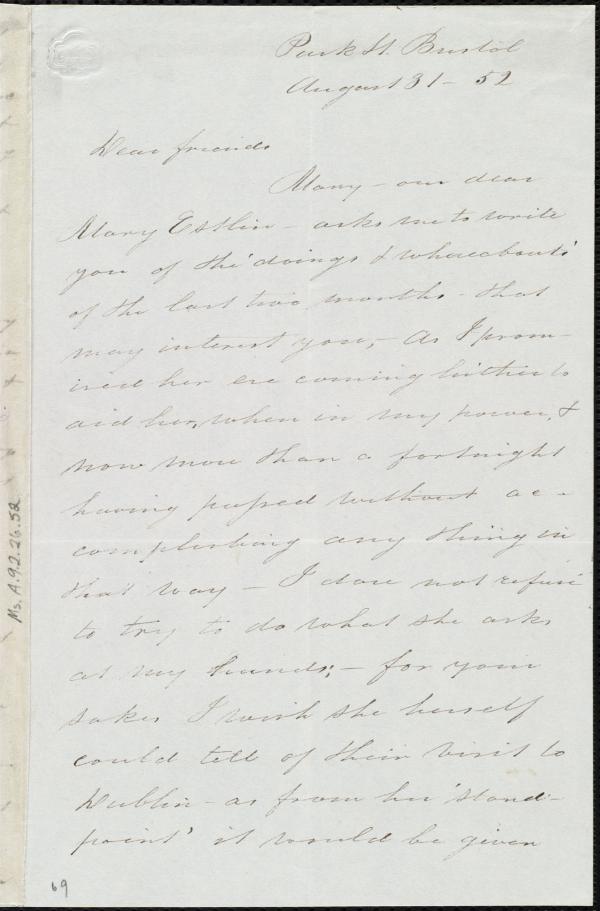 Park St. Bristol
August 31 - 52
Dear friends
Mary - our dear
Mary Estlin - asks me to write
you of the 'doings & whereabouts'
of the last two months - that
may interest you, - As I prom-
ised her ere coming hither to
aid her, when in my power, &
now more than a fortnight
having passed without ac-
complishing any thing in
that way - I dare not refuse
to try to do what she asks
at my hands; - for your
sakes I wish she herself
could tell of their visit to
Dublin - as from her 'stand-
point' it would be given
69
Ms. A.9.2.26.52